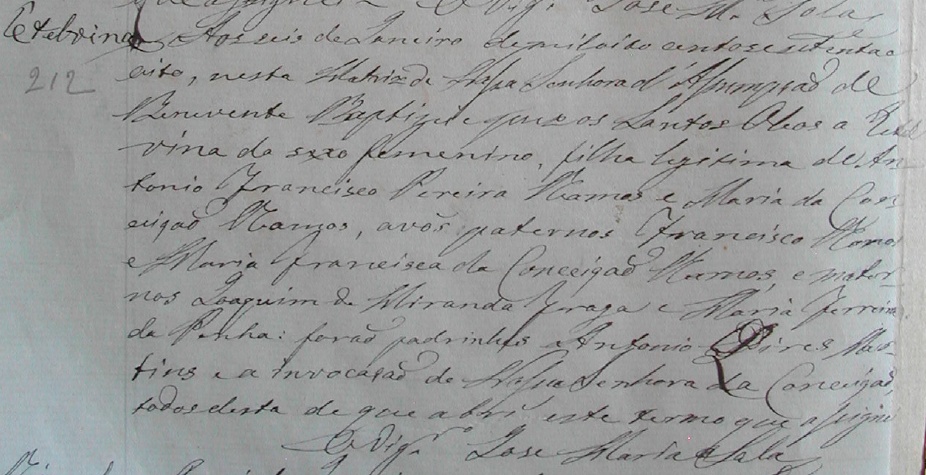 que assignei O Vigr.º José M.ª Sala
Etelvina Aos seis de Janeiro de mil oito centos e setenta e
212
oito, nesta Matriz de Nossa Senhora d'Assumpçaõ de
Benevente Baptizei e puz os Santos Oleos a Etel
vina do sexo femenino, filha legitima de An
tonio Francisco Pereira Ramos e Maria da Con
ceiçaõ Ramos, avós paternos Francisco Ramos
e Maria Francisca da Conceiçaõ Ramos, e mater
nos Joaquim de Miranda Fraga e Maria Ferreira
da Penha: foraõ padrinhos Antonio Pires Mar
tins e a invocasaõ de Nossa Senhora da Conceiçaõ,
todos desta de que abri este termo que assignei
O Vigr.º José Maria Sala